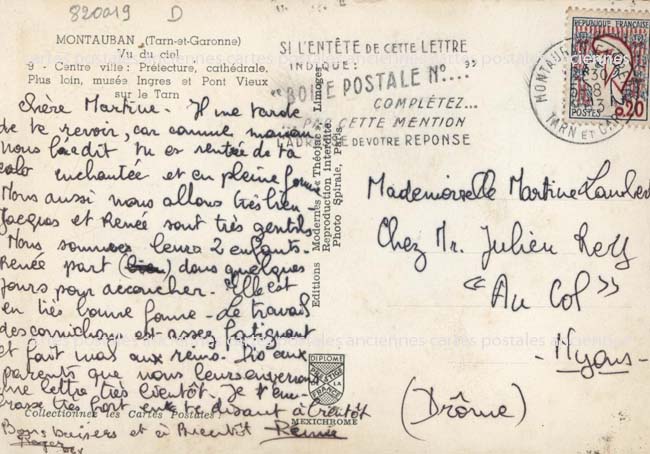 820019 D
MONTAUBAN (Tarn-et-Garonne)
Vu du ciel
9 - Centre ville : Préfecture, cathédrale,
Plus loin, musée Ingres et Pont Vieux
sur le Tarn
SI L'ENTÊTE DE CETTE LETTRE
INDIQUE :
"BOITE POSTALE N°..."
COMPLÉTEZ...
PAR CETTE MENTION
L'ADRESSE DE VOTRE REPONSE
MONTAUBAN
TARN ET G
REPUBLIQUE FRANÇAISE
POSTES 0,20
Chère Martine - Il me tarde
de te revoir, car comme maman
nous l'a écrit tu es rentrée de ta
colo enchantée et en pleine forme
Nous aussi nous allons très bien -
Jacques et Renée sont très gentils
Nous sommes leurs 2 enfants -
Renée part (bien) dans quelques
jours pour accoucher - Elle est
en très bonne forme - Le travail
des cornichons est assez fatiguant
et fait mal aux reins. Dis aux
parents que nous leurs enverrons
une lettre très bientôt. Je t'em-
brasse très fort en te disant à bientôt
Bons baisers et à Bientôt
Roger
Editions Modernes « Théojac », Limoges
Reproduction interdite
Photo Spirale, Paris
DIPLOME
LA FRANCE
MEXICHROME
Collectionnez les Cartes Postales
Mademoiselle Martine Lambert
Chez Mr. Julien
"Au Col"
- Nyons -
(Drôme)
cartes postales anciennes